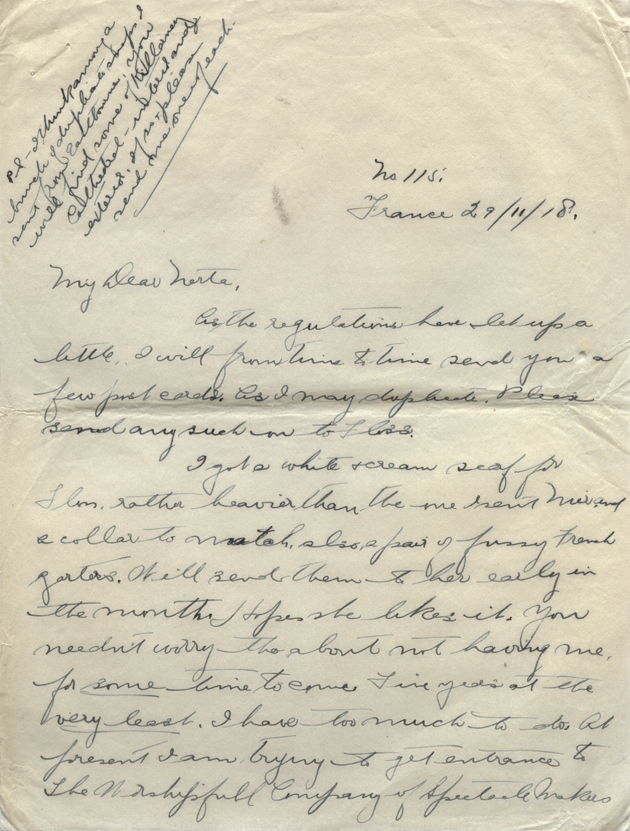 P.S. I think among a
bunch of duplicate snaps I
sent from Eastbourne, you
will find some of Killaney
Cathedral - interior and
exterior, if so, please
send me one of each.
No 115.
France 29/11/18.
My Dear Norta,
As the regulations have let up a
little, I will from time to time send you a
few post cards. As I may duplicate. Please
send any such on to Floss.
I got a white & cream scarf for
Flon, rather heavier than the one I sent and
a collar to match, also a pair of fussy French
garters. Will send them to her early in
the month. I hope she likes it. You
needn't worry tho about not having me
for some time to come. Five years at the
very least. I have too much to do. At
present I am trying to get entrance to
The Worshipfull Company of Spectacle Makers